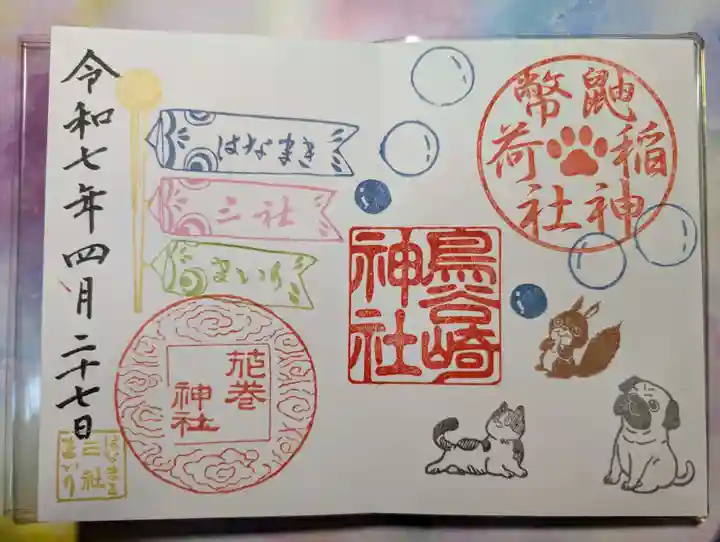 鼬幣
稲荷
神社
鳥谷崎
神社
はなまき
三社
まいり
花巻
神社
はなまき
三社
まいり
令和七年四月二十七日